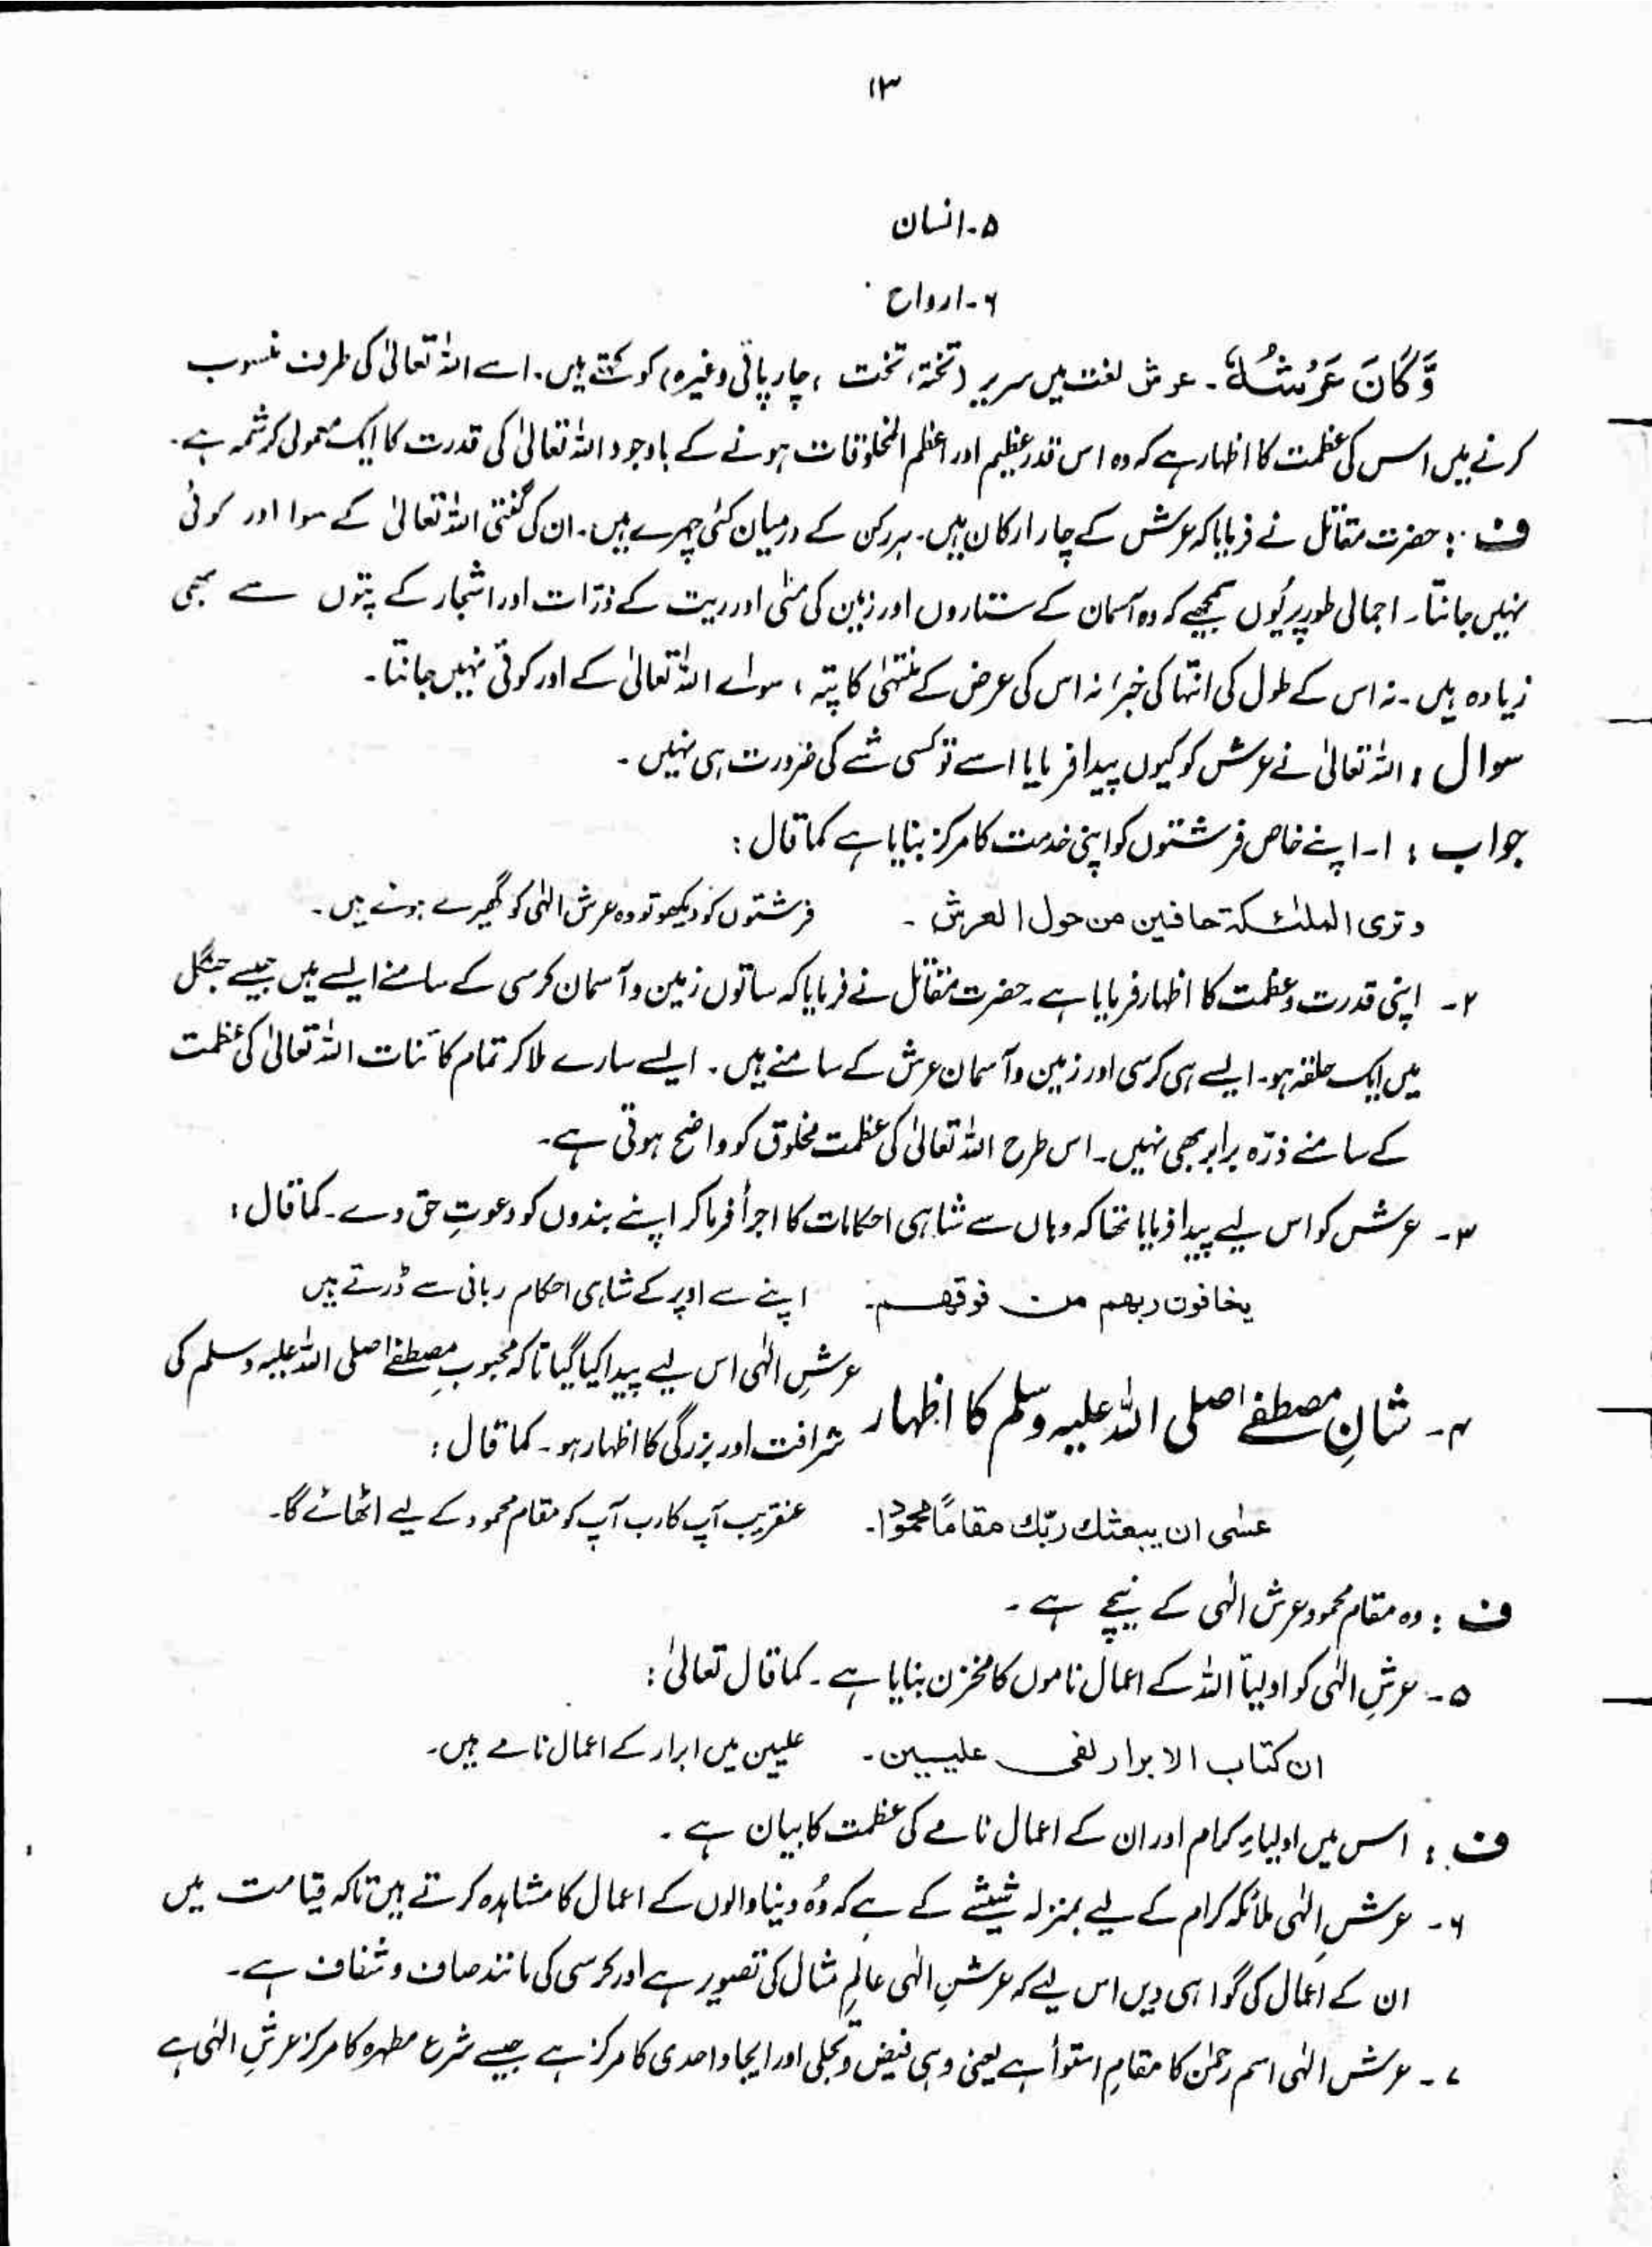 ۱۳
۵۔ انسان
۶۔ ارواح
وَّ كَانَ عَرْشُهٗ ۔ عرش لغت میں سریر (تختہ، تخت ، چارپائی وغیرہ) کو کہتے ہیں۔ اسے اللہ تعالیٰ کی طرف منسوب
کرنے میں اس کی عظمت کا اظہار ہے کہ وہ اس قدر عظیم اور اعظم المخلوقات ہونے کے باوجود اللہ تعالیٰ کی قدرت کا ایک معمولی کرشمہ ہے۔
ف : حضرت مقاتل نے فرمایا کہ عرش کے چار ارکان ہیں۔ ہر رکن کے درمیان کئی چہرے ہیں۔ ان کی گنتی اللہ تعالیٰ کے سوا اور کوئی
نہیں جانتا۔ اجمالی طور پر یُوں سمجھیے کہ وہ آسمان کے ستاروں اور زمین کی مٹی اور ریت کے ذرّات اور اشجار کے پتوں سے بھی
زیادہ ہیں۔ نہ اس کے طول کی انتہا کی خبر، نہ اس کی عرض کے منتہیٰ کا پتہ ، سوائے اللہ تعالیٰ کے اور کوئی نہیں جانتا۔
سوال : اللہ تعالیٰ نے عرش کو کیوں پیدا فرمایا اسے تو کسی شے کی ضرورت ہی نہیں ۔
جواب : ۱۔ اپنے خاص فرشتوں کو اپنی خدمت کا مرکز بنایا ہے کما قال :
وتری الملئکة حافین من حول العرش ۔ فرشتوں کو دیکھو تو وہ عرش الٰہی کو گھیرے ہوئے ہیں۔
۲۔ اپنی قدرت و عظمت کا اظہار فرمایا ہے۔ حضرت مقاتل نے فرمایا کہ ساتوں زمین و آسمان کرسی کے سامنے ایسے ہیں جیسے جنگل
میں ایک حلقہ ہو۔ ایسے ہی کرسی اور زمین و آسمان عرش کے سامنے ہیں ۔ ایسے سارے ملا کر تمام کائنات اللہ تعالیٰ کی عظمت
کے سامنے ذرّہ برابر بھی نہیں۔ اس طرح اللہ تعالیٰ کی عظمت مخلوق کو واضح ہوتی ہے۔
۳۔ عرش کو اس لیے پیدا فرمایا تھا کہ وہاں سے شاہی احکامات کا اجرأ فرما کر اپنے بندوں کو دعوتِ حق دے۔ کما قال :
یخافون ربهم من فوقهم۔ اپنے سے اوپر کے شاہی احکام ربانی سے ڈرتے ہیں
۴۔ شانِ مصطفےٰ صلی اللہ علیہ وسلم کا اظہار عرشِ الٰہی اس لیے پیدا کیا گیا تاکہ محبوبِ مصطفےٰ صلی اللہ علیہ وسلم کی
شرافت اور بزرگی کا اظہار ہو۔ کما قال :
عسٰی ان یبعثك ربّك مقامًا محمودًا۔ عنقریب آپ کا رب آپ کو مقام محمود کے لیے اٹھائے گا۔
ف : وہ مقام محمود عرش الٰہی کے نیچے ہے ۔
۵۔ عرشِ الٰہی کو اولیأ اللہ کے اعمال ناموں کا مخزن بنایا ہے ۔ کما قال تعالیٰ :
ان کتاب الابرار لفی علیین۔ علیین میں ابرار کے اعمال نامے ہیں۔
ف : اس میں اولیاءِ کرام اور ان کے اعمال نامے کی عظمت کا بیان ہے ۔
۶۔ عرشِ الٰہی ملائکہ کرام کے لیے بمنزلہ شیشے کے ہے کہ وُہ دنیا والوں کے اعمال کا مشاہدہ کرتے ہیں تاکہ قیامت میں
ان کے اعمال کی گواہی دیں اس لیے کہ عرشِ الٰہی عالمِ مثال کی تصویر ہے اور کرسی کی مانند صاف و شفاف ہے۔
۷۔ عرش الٰہی اسم رحمٰن کا مقامِ استوأ ہے یعنی وہی فیض و تجلی اور ایجاد احدی کا مرکز ہے جیسے شرع مطہرہ کا مرکز عرشِ الٰہی ہے